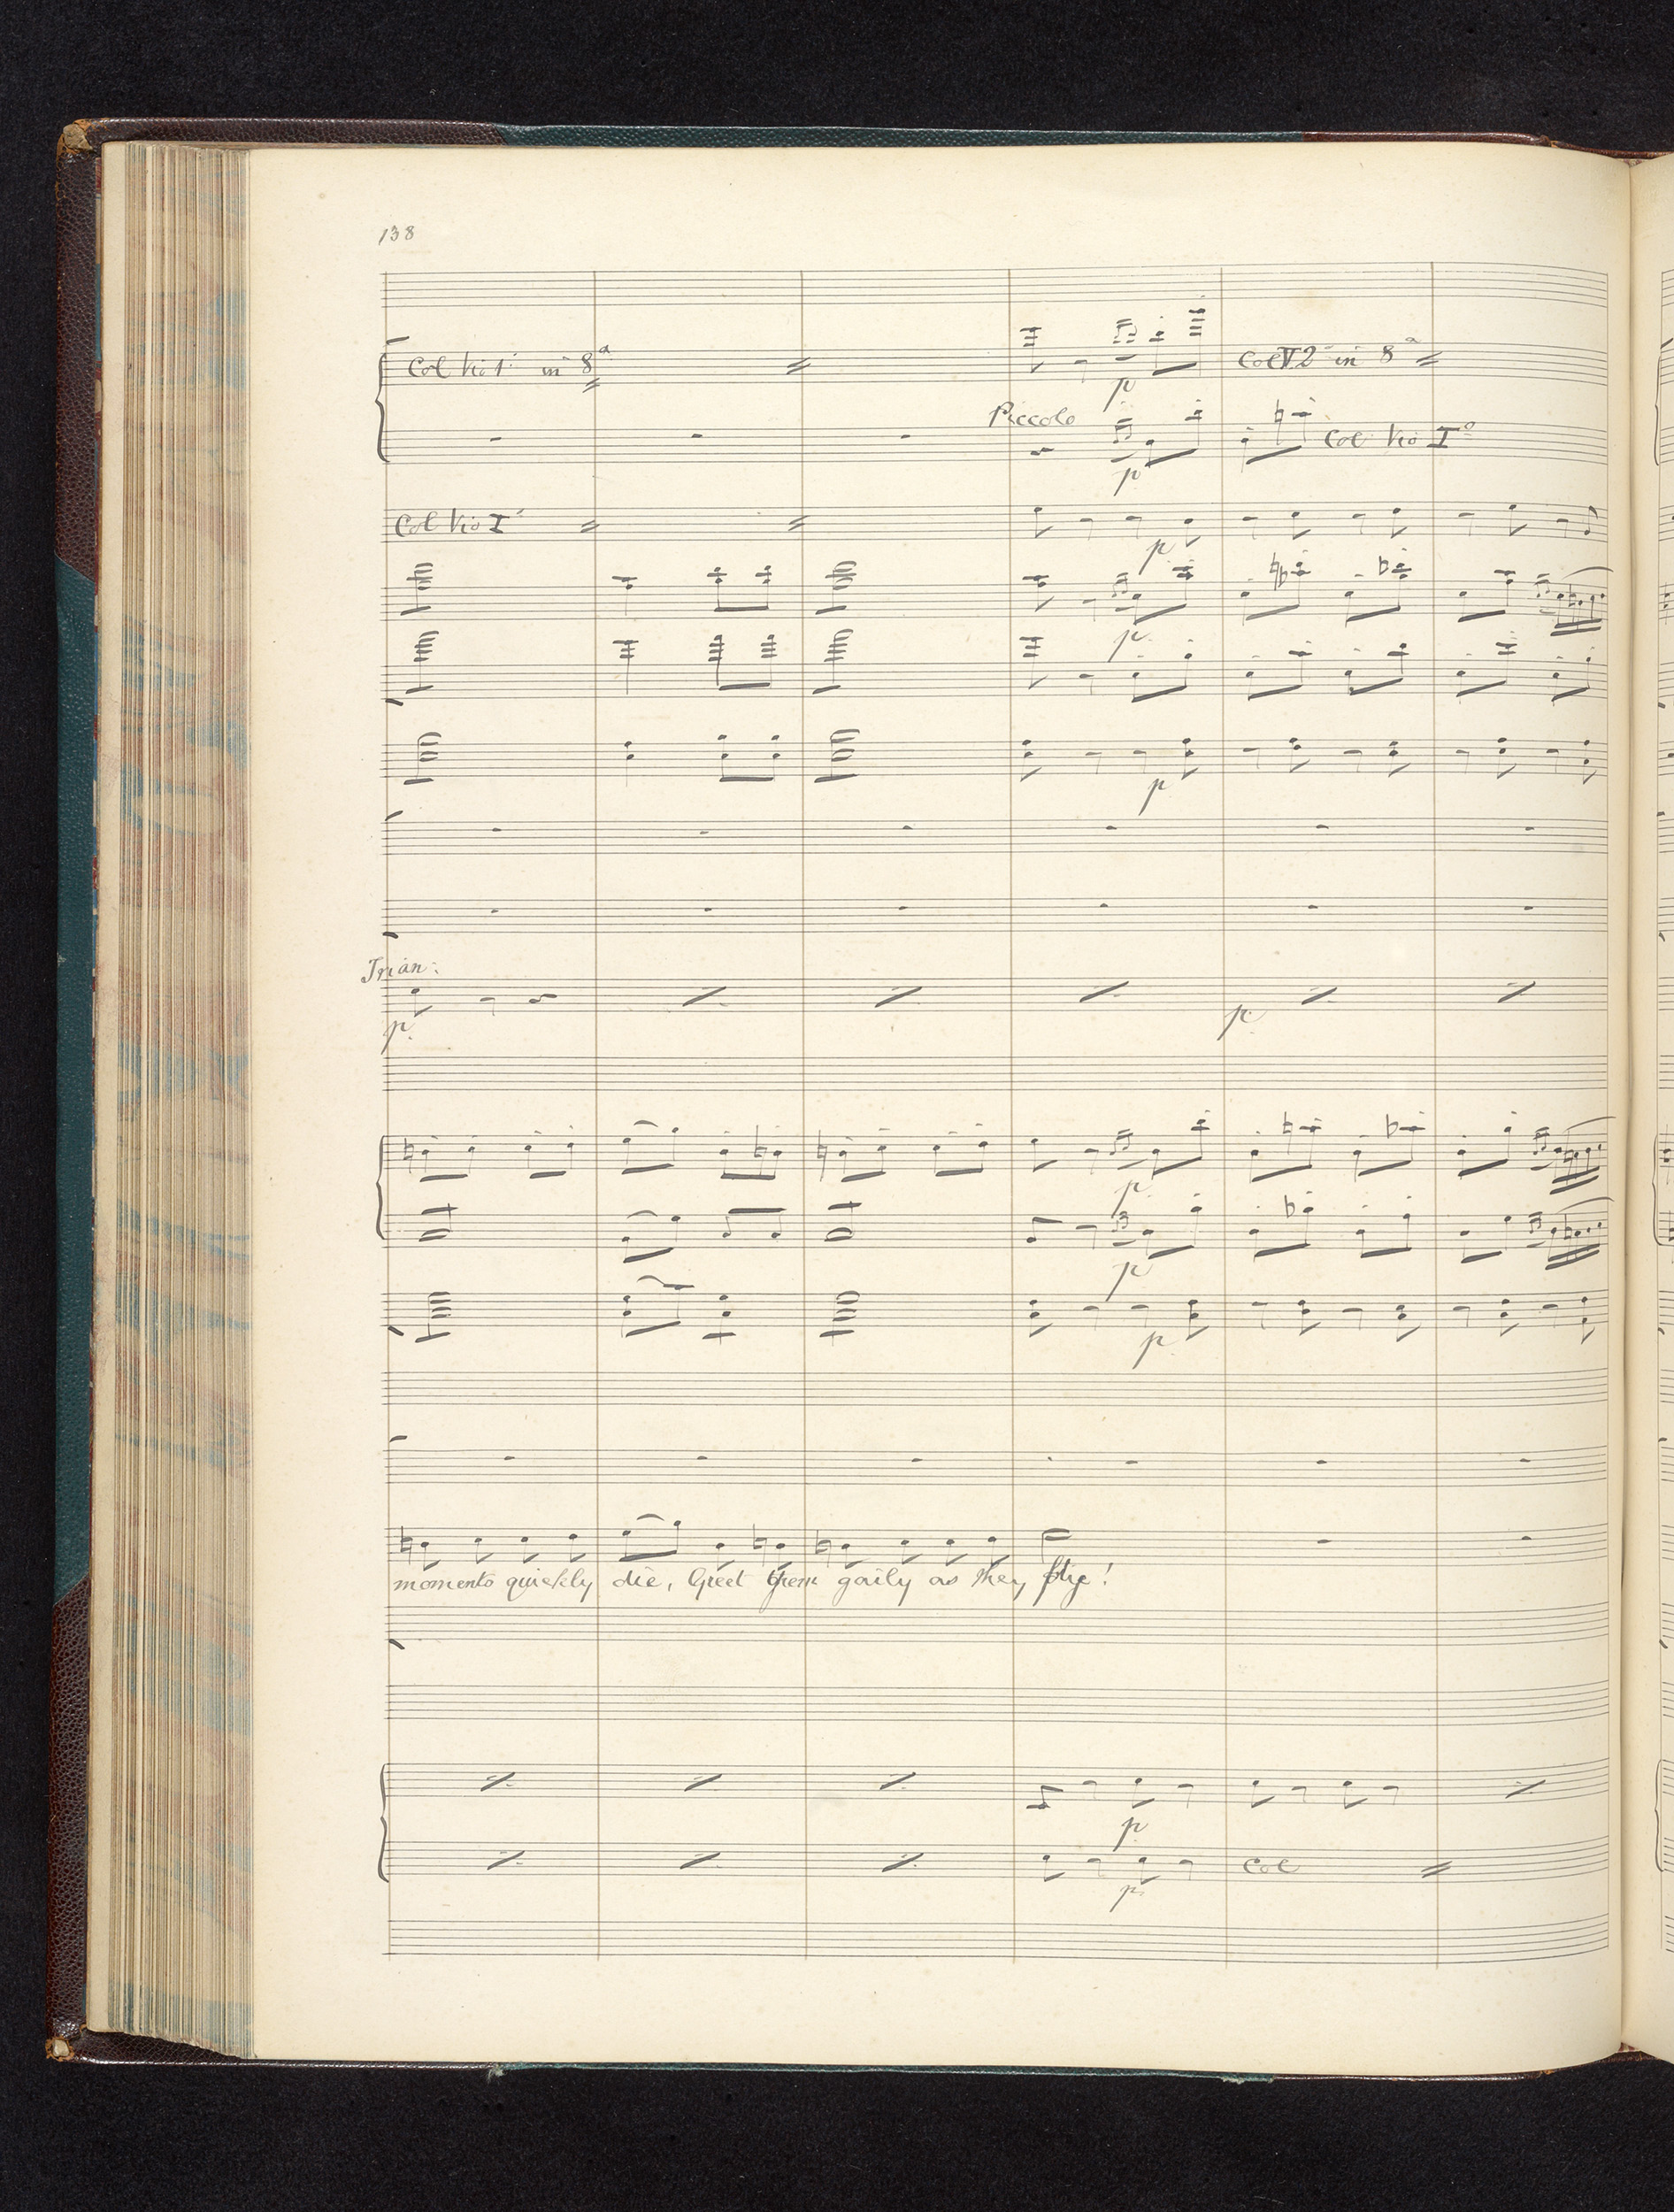 138
Col Vio 1º in 8ª
Col V 2º in 8ª
Piccolo
p
p
Col Vio Iº
Col Vio Iº
p
p
p
Trian:
p.
p.
p
p
p
momento quickly die, Greet them gaily as they fly!
p
Col
p